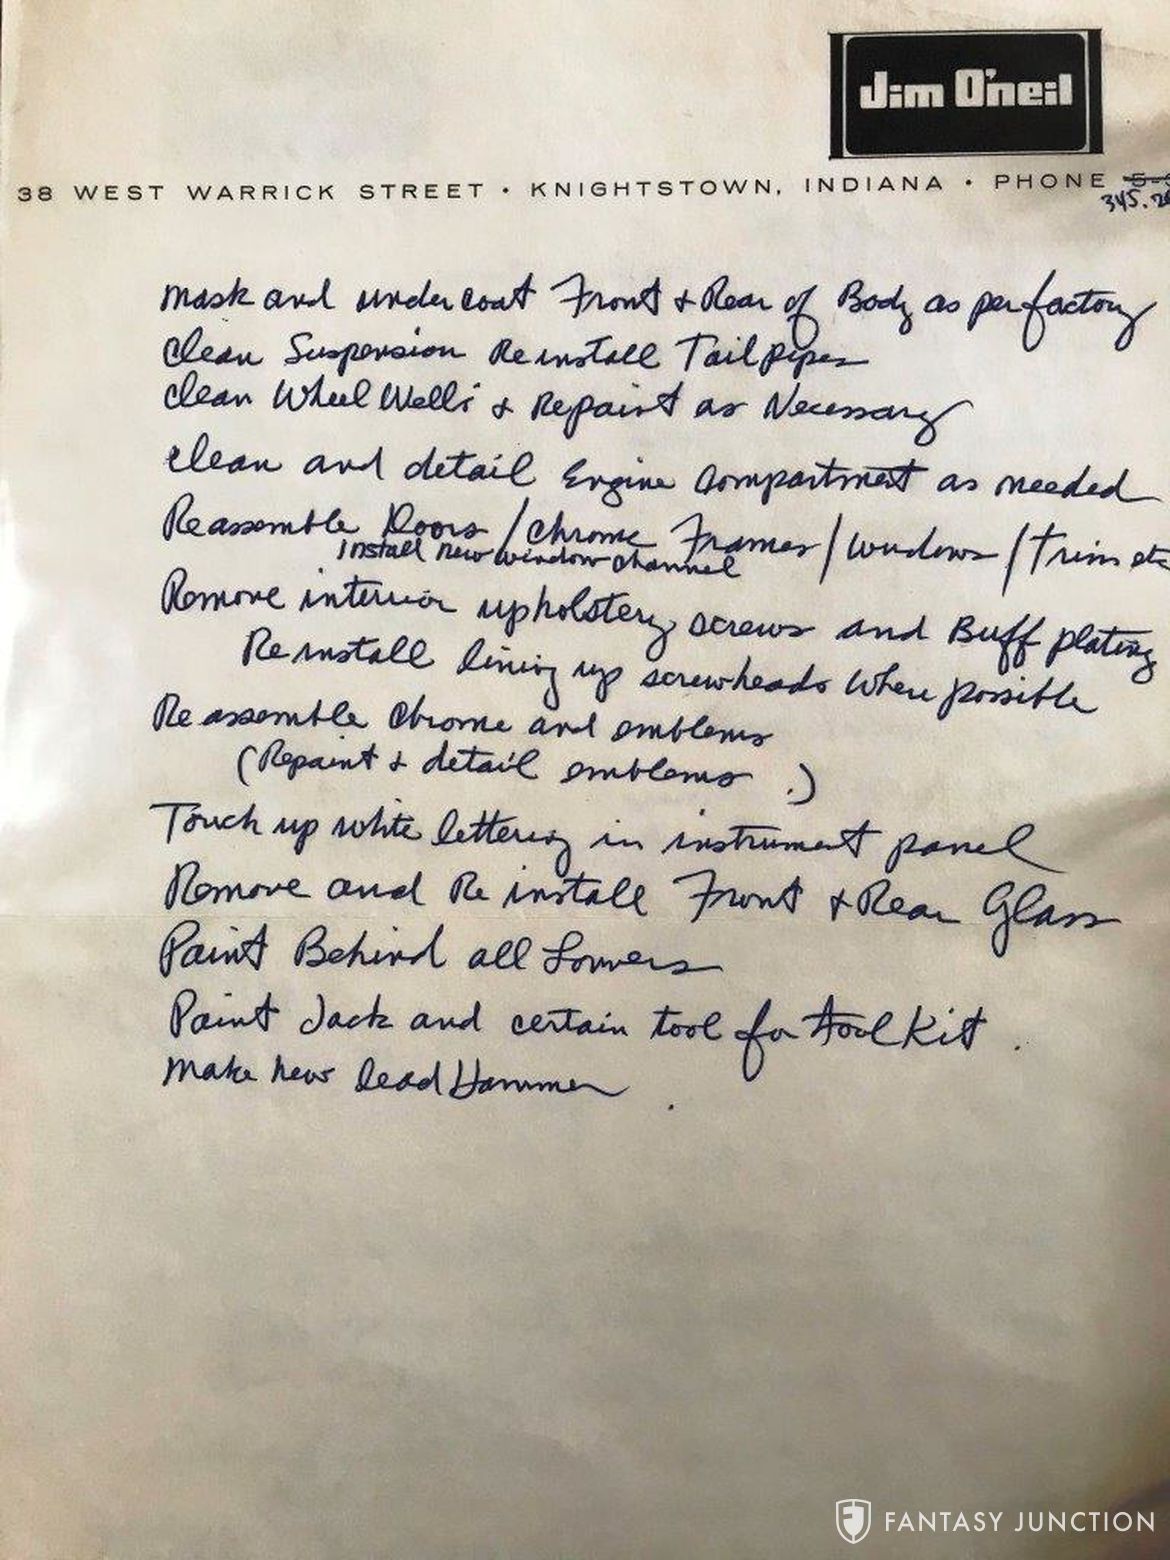 Jim O'neil
38 WEST WARRICK STREET • KNIGHTSTOWN, INDIANA • PHONE
345.
Mask and undercoat Front & Rear of Body as per factory
Clean Suspension Reinstall Tail pipes
Clean Wheel Wells & Repaint as Necessary
Clean and detail Engine Compartment as needed
Reassemble Doors / Chrome Frames / Windows / Trim etc
install new window channel
Remove interior upholstery screws and Buff plating
Reinstall lining up screwheads where possible
Reassemble Chrome and emblems
(Repaint & detail emblems.)
Touch up white lettering in instrument panel
Remove and Reinstall Front & Rear Glass
Paint Behind all Louvers
Paint Jack and certain tool for tool Kit.
Make new lead Hammer.
FANTASY JUNCTION